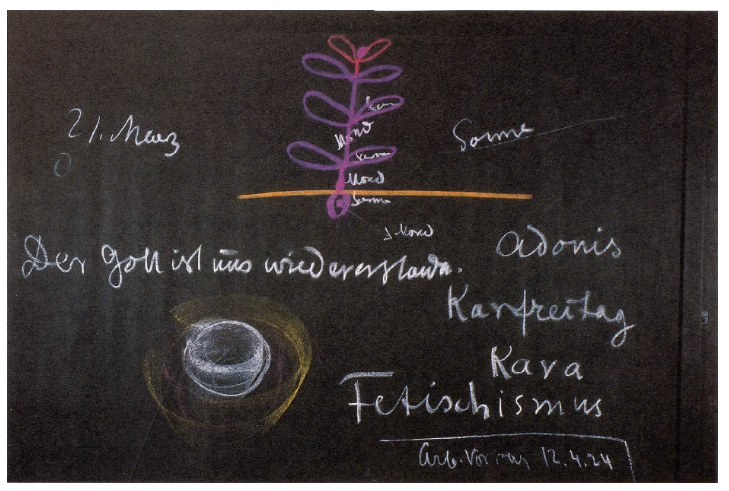 21. Maerz
Sonne
Sonne
Mond
Sonne
Mond
Sonne
Mond
Der Gott ist uns wiedererstanden.
Adonis
Karfreitag
Kara
Fetischismus
Arb. Vortrag 12.4.24